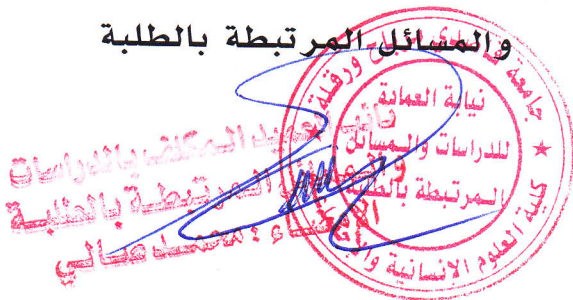 والمسائل المرتبطة بالطلبة
جامعة قاصدي مرباح ورقلة
نيابة العمادة
للدراسات والمسائل
المرتبطة بالطلبة
كلية العلوم الانسانية
نائب العميد المكلف بالدراسات
المرتبطة بالطلبة
الإمضاء : محمد صالي